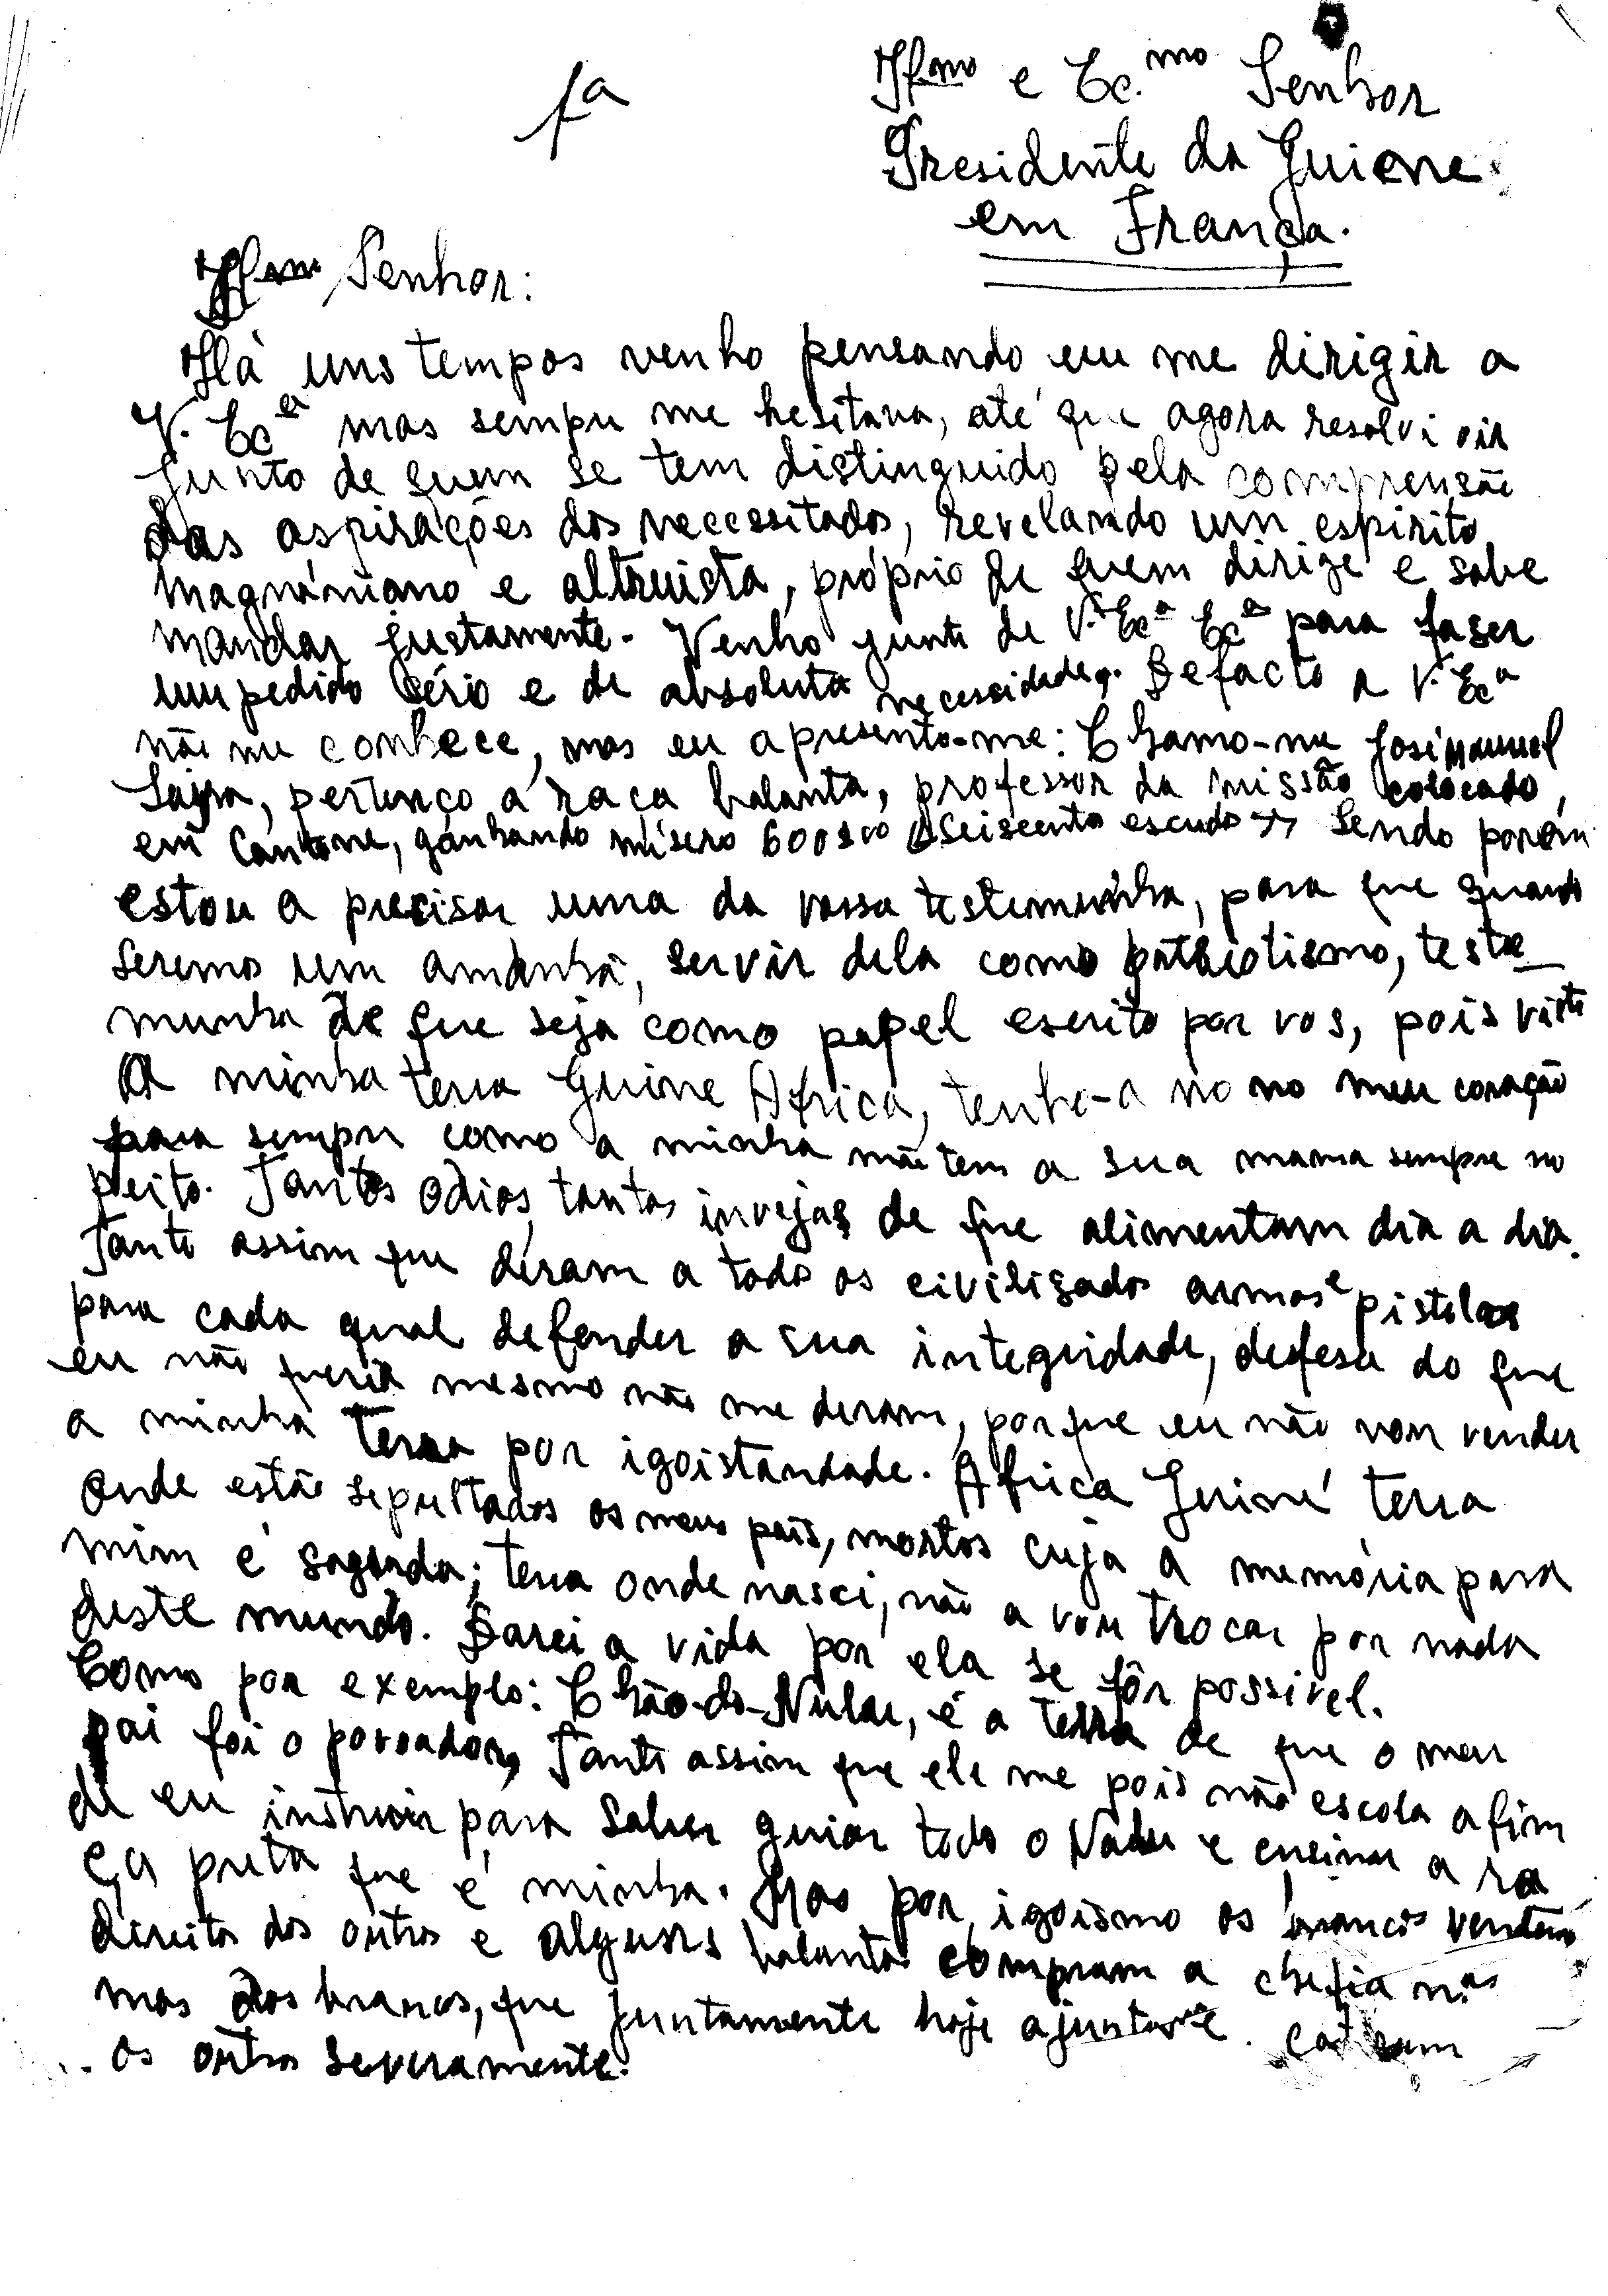 1ª
Ilmo e Ec.mo Senhor
Presidente da Guiene
em França.
Ilmo Senhor:
Há uns tempos venho pensando em me dirigir a
V. Ecª mas sempre me hesitava, até que agora resolvi vir
junto de quem se tem distinguido pela comprensão
das aspirações dos necessitados, revelando um espirito
magnâmiano e altruista, próprio de quem dirige e sabe
mandar justamente. Venho junto de V. Ecª Ecª para faser
um pedido sério e de absoluta necessidade. De facto a V. Ecª
não me conhece, mas eu apresento-me: Chamo-me José Manuel
pertenço a raça balanta, professor da missão colocado,
em ganhando mísero 600$00 Seiscento escudo Sendo porém
estou a precisar uma da vossa testemunha, para que quando
seremos um amanhã, servir dela como pathiotismo, teste_
munha de que seja como papel escrito por vos, pois visto
a minha terra Guine Africa, tenho-a no no meu coração
para sempre como a minha mãe tem a sua mama sempre no
peito. Tantos odios, tantas invejas de que alimentam dia a dia.
Tanto assim que deram a todo os civilisado armas e pistolas
para cada qual defender a sua integridade, defesa do que
eu não queria mesmo não me deram, porque eu não vou vender
a minha terra por igoistandade. Africa Guiné terra
onde estão sepultados os meus pais, mortos cuja a memória para
mim é sagrada; terra onde nasci, não a vou trocar por nada
deste mundo. Darei a vida por ela se fôr possivel.
Como por exemplo: Chão-do-Nalu, é a terra de que o meu
pai foi o povoador, Tanto assim que ele me pois não escola afim
de eu instruir para saber guiar todo o Nalu e ensinar a ra
ça preta que é minha. Mas por igoismo os brancos vendem
direitos dos outros e alguns balantas compram a chefia nas
mas dos brancos, que juntamente hoje
os outros severamente.